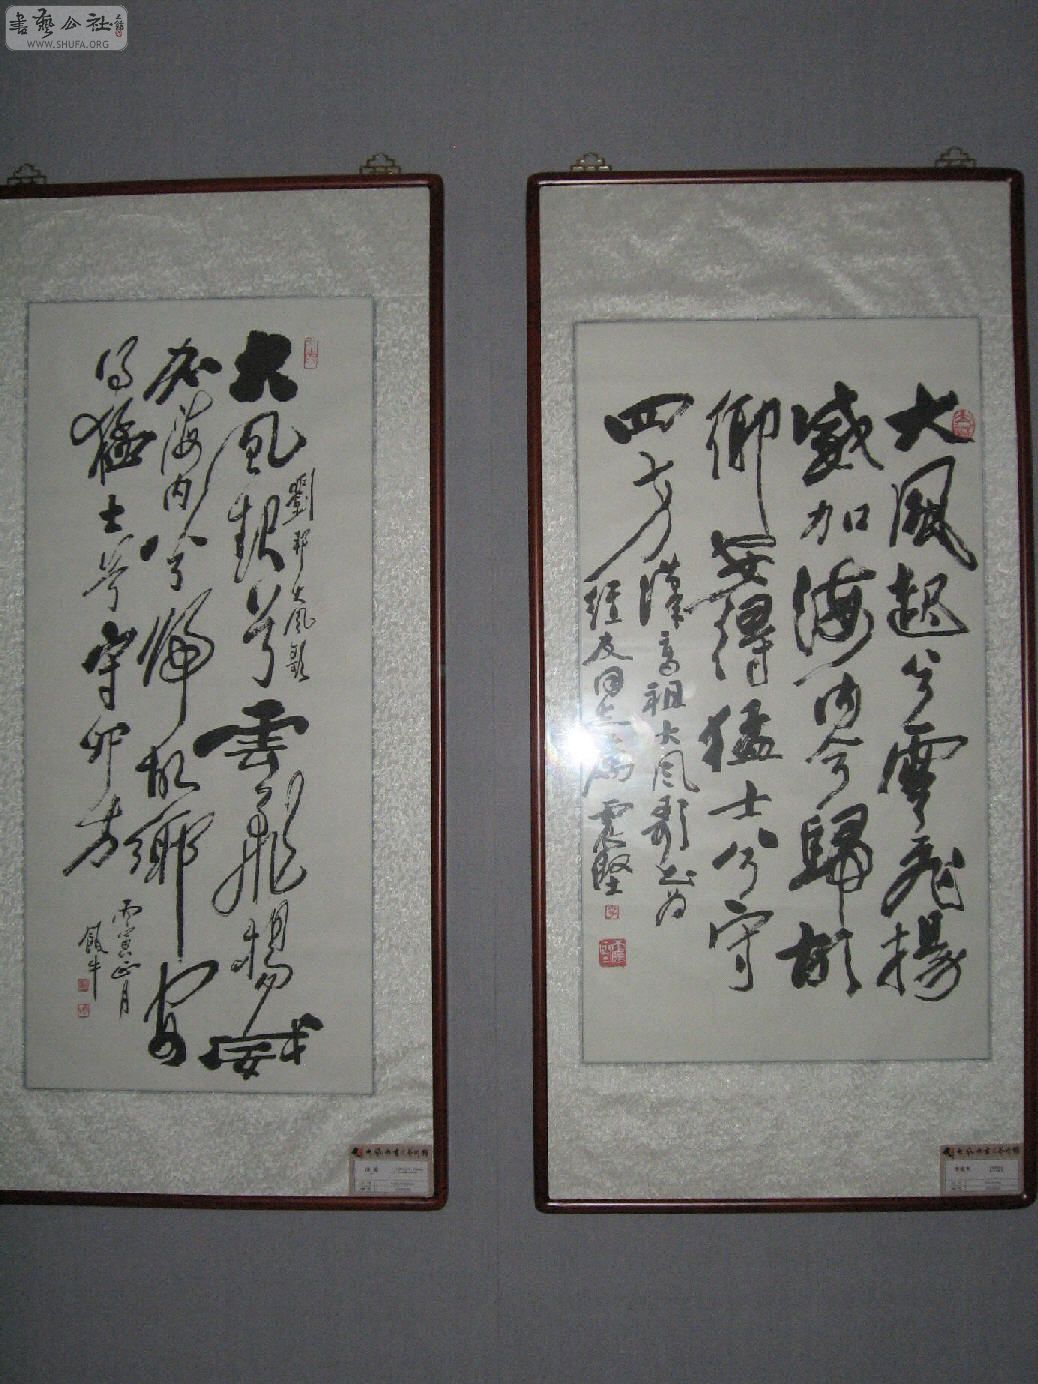 書藝公社
WWW.SHUFA.ORG
大風起兮雲飛揚
威加海內兮歸故
鄉安得猛士兮守
四方
漢高祖大風歌書為
經友同志屬 震堅
劉邦大風歌
大風起兮雲飛揚威
加海内兮歸故鄉安
得猛士兮守四方
丙寅正月
飯牛